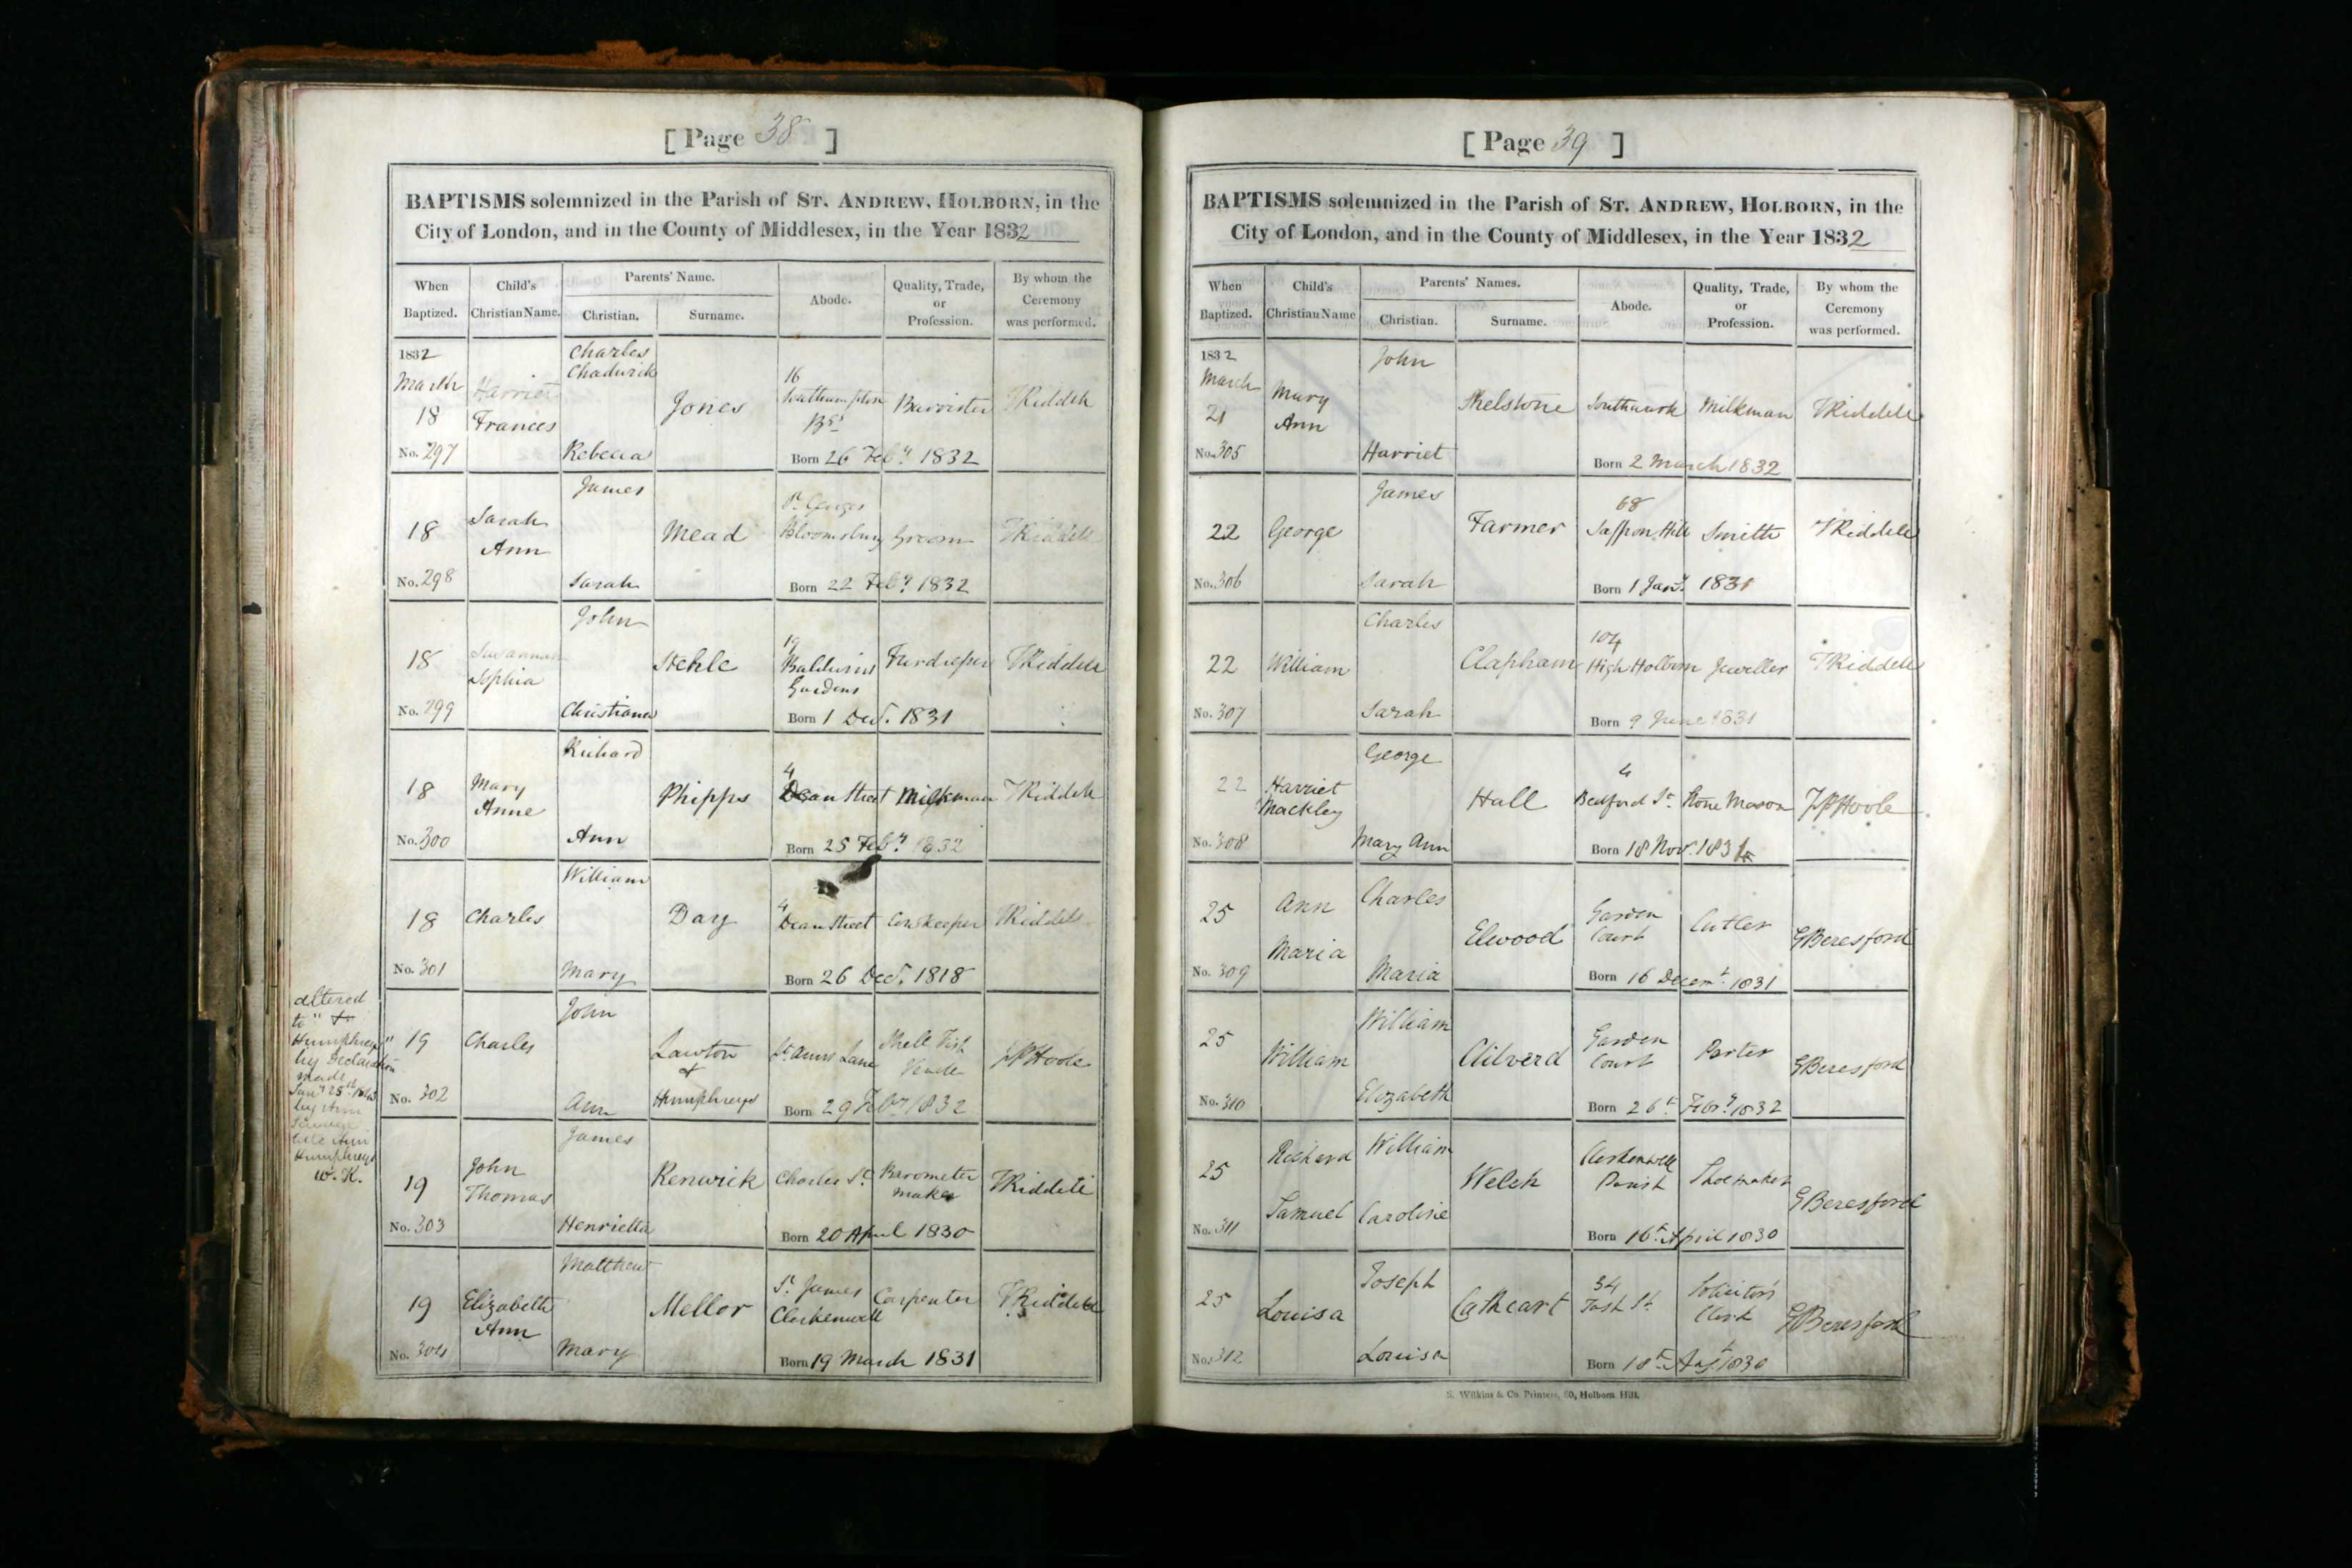 [ Page 38 ]
BAPTISMS solemnized in the Parish of ST. ANDREW, HOLBORN, in the
City of London, and in the County of Middlesex, in the Year 1832
When Baptized.
Child's Christian Name.
Parents' Name.
Christian.
Surname.
Abode.
Quality, Trade, or Profession.
By whom the Ceremony was performed.
1832
March
18
No. 297
Harriet
Frances
Charles
Chadwick
Rebecca
Jones
16
Southampton
Bgs
Barrister
TRiddell
Born 26 Feby 1832
18
No. 298
Sarah
Ann
James
Sarah
Mead
St Georges
Bloomsbury
Groom
TRiddell
Born 22 Feby 1832
18
No. 299
Susannah
Sophia
John
Christiana
Stehle
19
Baldwins
Gardens
TRiddell
Born 1 Decr. 1831
18
No. 300
Mary
Anne
Richard
Ann
Phipps
4
Dean Street
Milkman
TRiddell
Born 25 Feby 1832
18
No. 301
Charles
William
Mary
Day
4
Dean Street
Cowkeeper
TRiddell
Born 26 Decr. 1818
altered
to "
Humphreys"
by Declaration
made
Jany 25th
by Ann
late Ann
Humphreys
W. K.
19
No. 302
Charles
John
Ann
Lawton
+
Humphreys
St Anns Lane
Shell Fish
JPHoole
Born 29 Feby 1832
19
No. 303
John
Thomas
James
Henrietta
Renwick
Charles St
Barometer
maker
TRiddell
Born 20 April 1830
19
No. 304
Elizabeth
Ann
Matthew
Mary
Mellor
St James
Clerkenwell
Carpenter
TRiddell
Born 19 March 1831
[ Page 39 ]
BAPTISMS solemnized in the Parish of ST. ANDREW, HOLBORN, in the
City of London, and in the County of Middlesex, in the Year 1832
When Baptized.
Child's Christian Name
Parents' Names.
Christian.
Surname.
Abode.
Quality, Trade, or Profession.
By whom the Ceremony was performed.
1832
March
21
No. 305
Mary
Ann
John
Harriet
Skelstone
Southwark
Milkman
TRiddell
Born 2 March 1832
22
No. 306
George
James
Sarah
Farmer
68
Saffron Hill
Smith
TRiddell
Born 1 Jany. 1831
22
No. 307
William
Charles
Sarah
Clapham
104
High Holborn
Jeweller
TRiddell
Born 9 June 1831
22
No. 308
Harriet
Mackley
George
Mary Ann
Hall
4
Bedford St.
Stone Mason
JPHoole
Born 18 Novr. 1831
25
No. 309
Ann
Maria
Charles
Maria
Elwood
Garden
Court
Cutler
GBeresford
Born 16 Decemr. 1831
25
No. 310
William
William
Elizabeth
Ailverd
Garden
Court
Porter
GBeresford
Born 26th Febry 1832
25
No. 311
Richard
Samuel
William
Caroline
Welch
Clerkenwell
Parish
Shoemaker
GBeresford
Born 16th April 1830
25
No. 312
Louisa
Joseph
Louisa
Cathcart
34
St.
Solicitor's
Clerk
GBeresford
Born 18th Augt 1830
S. Wilkins & Co. Printers, 60, Holborn Hill.